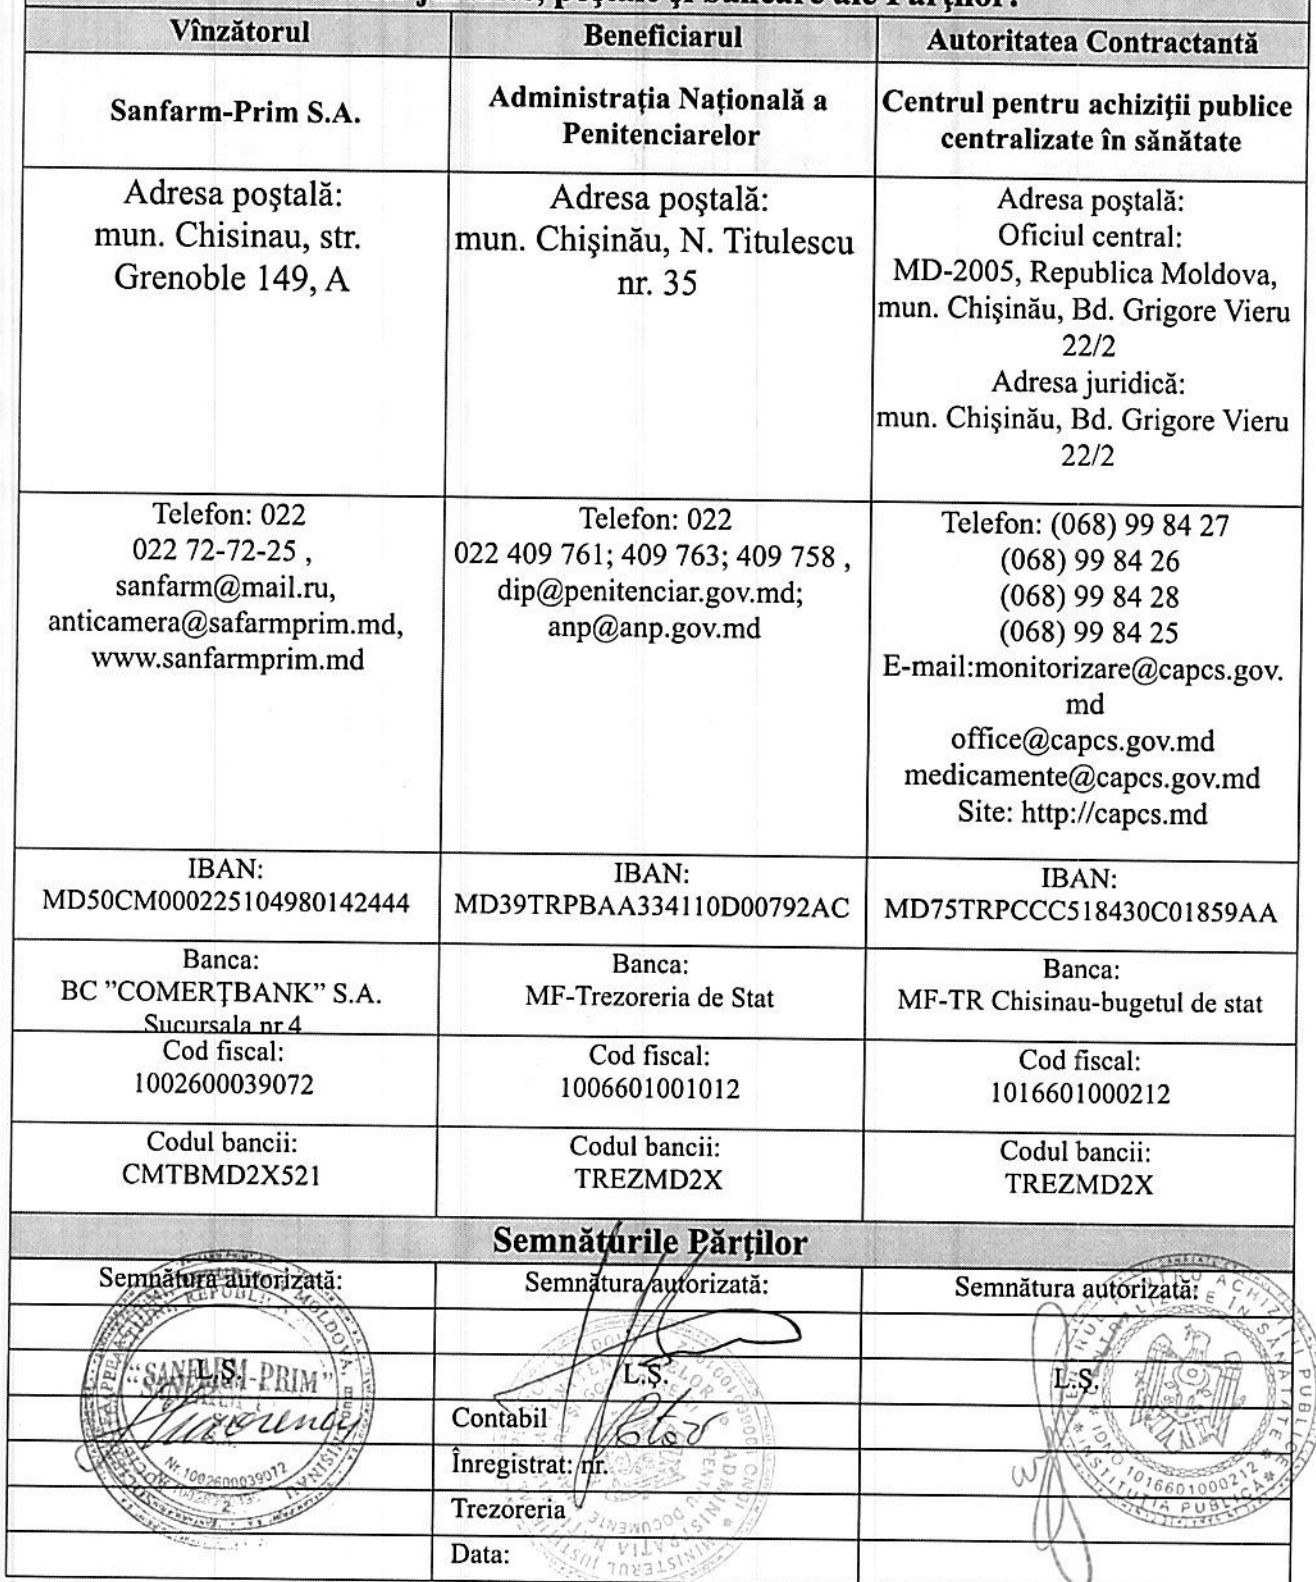 poştale şi bancare ale Părţilor:
Vînzătorul
Beneficiarul
Autoritatea Contractantă
Sanfarm-Prim S.A.
Administraţia Naţională a
Penitenciarelor
Centrul pentru achiziţii publice
centralizate în sănătate
Adresa poştală:
mun. Chisinau, str.
Grenoble 149, A
Adresa poştală:
mun. Chişinău, N. Titulescu
nr. 35
Adresa poştală:
Oficiul central:
MD-2005, Republica Moldova,
mun. Chişinău, Bd. Grigore Vieru
22/2
Adresa juridică:
mun. Chişinău, Bd. Grigore Vieru
22/2
Telefon: 022
022 72-72-25 ,
sanfarm@mail.ru,
anticamera@safarmprim.md,
www.sanfarmprim.md
Telefon: 022
022 409 761; 409 763; 409 758 ,
dip@penitenciar.gov.md;
anp@anp.gov.md
Telefon: (068) 99 84 27
(068) 99 84 26
(068) 99 84 28
(068) 99 84 25
E-mail:monitorizare@capcs.gov.
md
office@capcs.gov.md
medicamente@capcs.gov.md
Site: http://capcs.md
IBAN:
MD50CM000225104980142444
IBAN:
MD39TRPBAA334110D00792AC
IBAN:
MD75TRPCCC518430C01859AA
Banca:
BC ”COMERŢBANK” S.A.
Sucursala nr.4
Banca:
MF-Trezoreria de Stat
Banca:
MF-TR Chisinau-bugetul de stat
Cod fiscal:
1002600039072
Cod fiscal:
1006601001012
Cod fiscal:
1016601000212
Codul bancii:
CMTBMD2X521
Codul bancii:
TREZMD2X
Codul bancii:
TREZMD2X
Semnăturile Părţilor
Semnătura autorizată:
Semnătura autorizată:
Semnătura autorizată:
L.Ş.
L.Ş.
L.Ş.
"SANFARM-PRIM"
Nr. 1002600039072
Contabil
Înregistrat: nr.
Trezoreria
Data:
IDNO 1016601000212
INSTITUŢIA PUBLICĂ